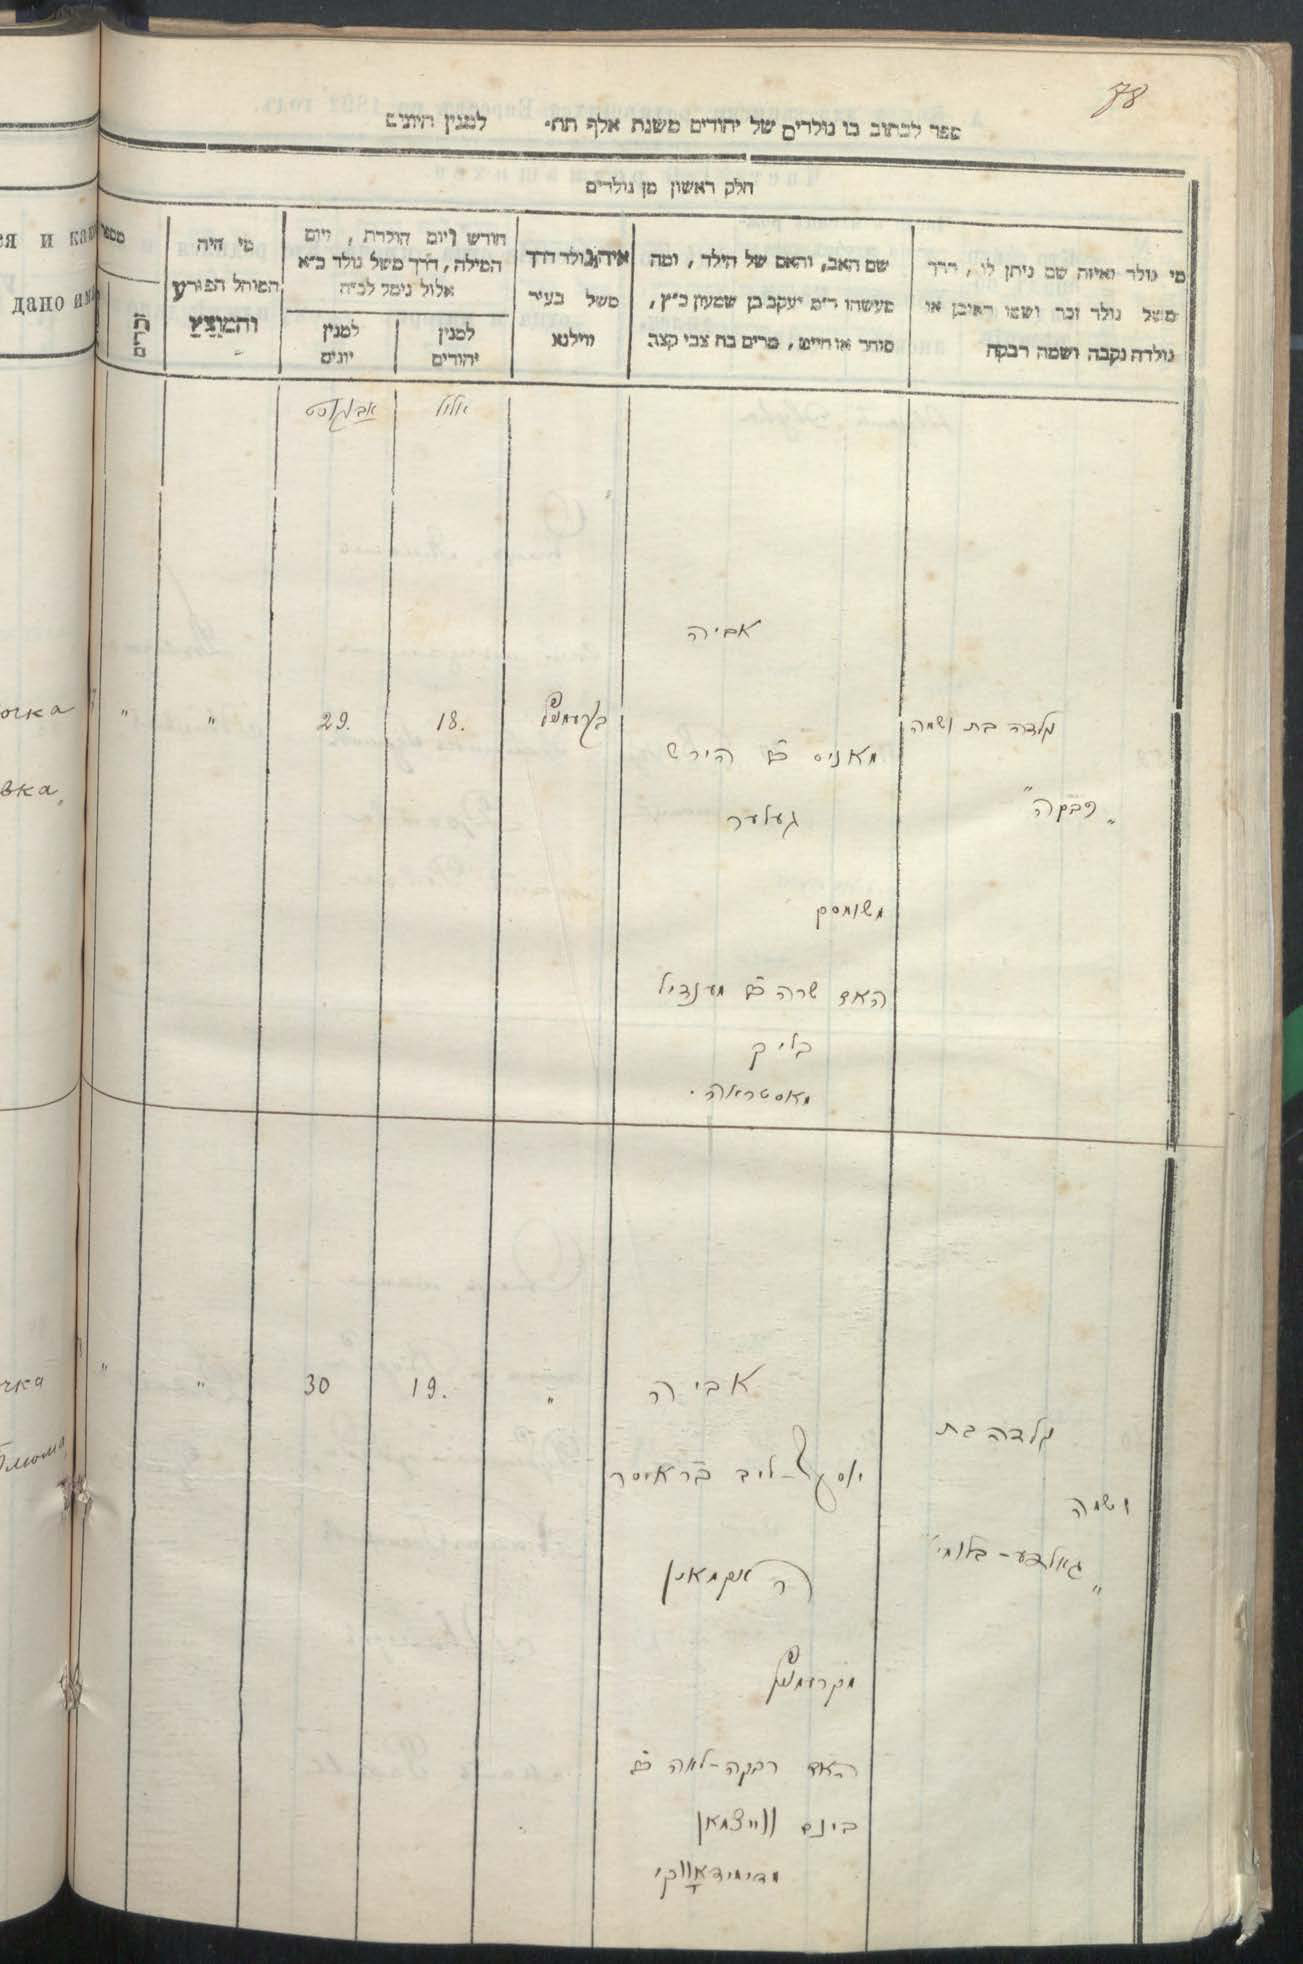 78
ספר לכתוב בו נולדים של יהודים משנת אלף תת״ למנין היונים
חלק ראשון מן נולדים
מי נולד ואיזה שם ניתן לו, דרך
משל נולד זכר ושמו ראובן או
נולדה נקבה ושמה רבקה
שם האב, והאם של הילד, ומה
מעשהו ד״מ יעקב בן שמעון כ״ץ,
סוחר או חייט, מרים בת צבי קצב
איה נולד דרך
משל בעיר
ווילנא
חודש ויום הולדת, ויום
המילה, דרך משל נולד כ״א
אלול נימל לכ״ה
למנין
יהודים
למנין
יונים
מי היה
המוהל הפורע
והמוצץ
מספר
זכרים
אלול
אבגוסט
אביה
נולדה בת ושמה
״רבקה״
מאניס ב״ר הירש
געלער
האם שרה ב״ר מענדיל
בליק
18.
29.
״
״
אביה
נולדה בת
ושמה
״גאלדע-בלומי״
יוסף-ליב ב״ר איסר
האקמאן
האם רבקה-לאה ב״ר
ווייצמאן
״
19.
30
״
״
очка
вка
я и как
дано им
чка